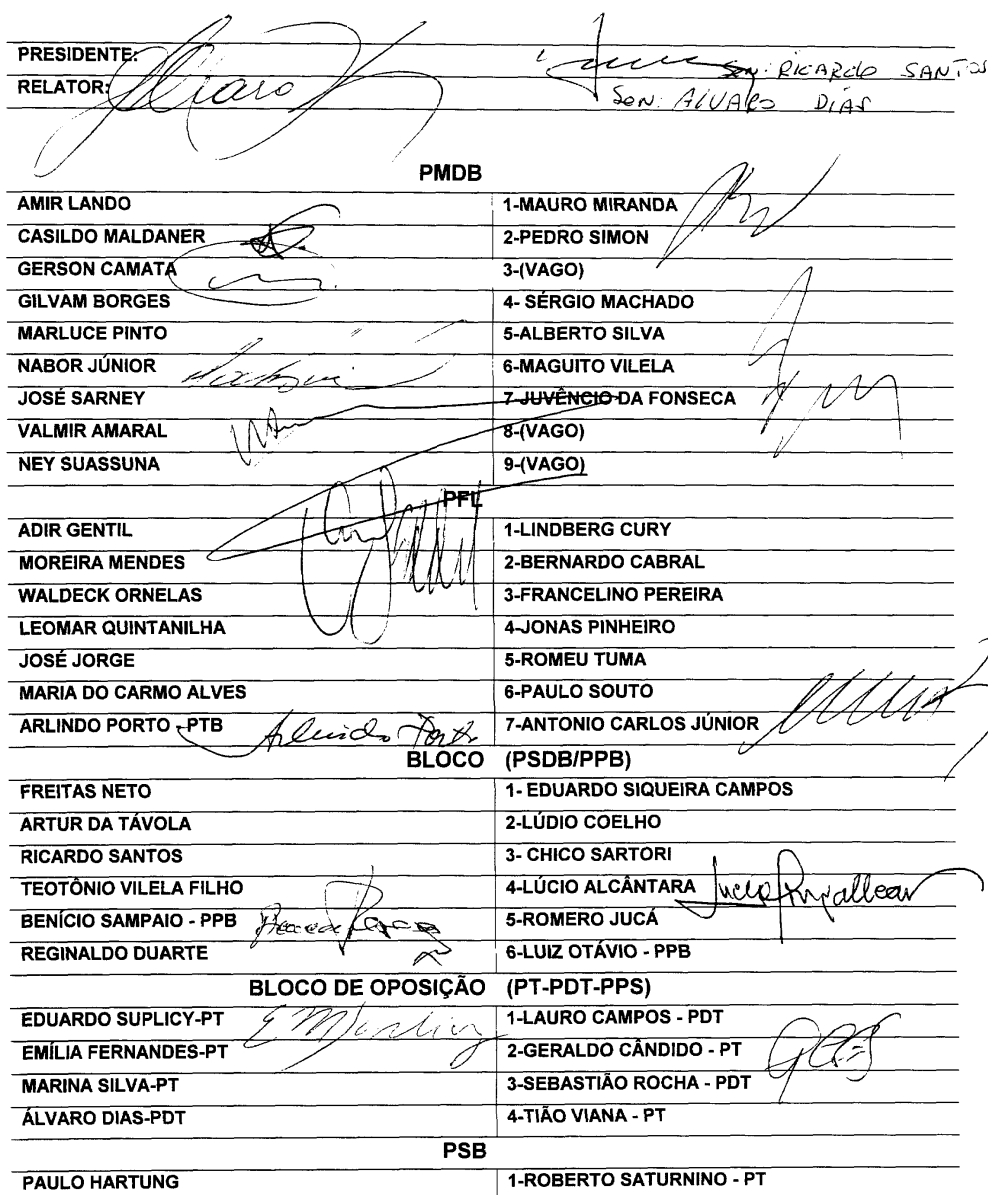 PRESIDENTE: Sen: RICARDO SANTOS
RELATOR: Sen: ALVARO DIAS
PMDB
AMIR LANDO 1-MAURO MIRANDA
CASILDO MALDANER 2-PEDRO SIMON
GERSON CAMATA 3-(VAGO)
GILVAM BORGES 4- SÉRGIO MACHADO
MARLUCE PINTO 5-ALBERTO SILVA
NABOR JÚNIOR 6-MAGUITO VILELA
JOSÉ SARNEY 7-JUVÊNCIO DA FONSECA
VALMIR AMARAL 8-(VAGO)
NEY SUASSUNA 9-(VAGO)
PFL
ADIR GENTIL 1-LINDBERG CURY
MOREIRA MENDES 2-BERNARDO CABRAL
WALDECK ORNELAS 3-FRANCELINO PEREIRA
LEOMAR QUINTANILHA 4-JONAS PINHEIRO
JOSÉ JORGE 5-ROMEU TUMA
MARIA DO CARMO ALVES 6-PAULO SOUTO
ARLINDO PORTO -PTB Arlindo Porto 7-ANTONIO CARLOS JÚNIOR
BLOCO (PSDB/PPB)
FREITAS NETO 1- EDUARDO SIQUEIRA CAMPOS
ARTUR DA TÁVOLA 2-LÚDIO COELHO
RICARDO SANTOS 3- CHICO SARTORI
TEOTÔNIO VILELA FILHO 4-LÚCIO ALCÂNTARA
BENÍCIO SAMPAIO - PPB 5-ROMERO JUCÁ
REGINALDO DUARTE 6-LUIZ OTÁVIO - PPB
BLOCO DE OPOSIÇÃO (PT-PDT-PPS)
EDUARDO SUPLICY-PT 1-LAURO CAMPOS - PDT
EMÍLIA FERNANDES-PT 2-GERALDO CÂNDIDO - PT
MARINA SILVA-PT 3-SEBASTIÃO ROCHA - PDT
ÁLVARO DIAS-PDT 4-TIÃO VIANA - PT
PSB
PAULO HARTUNG 1-ROBERTO SATURNINO - PT